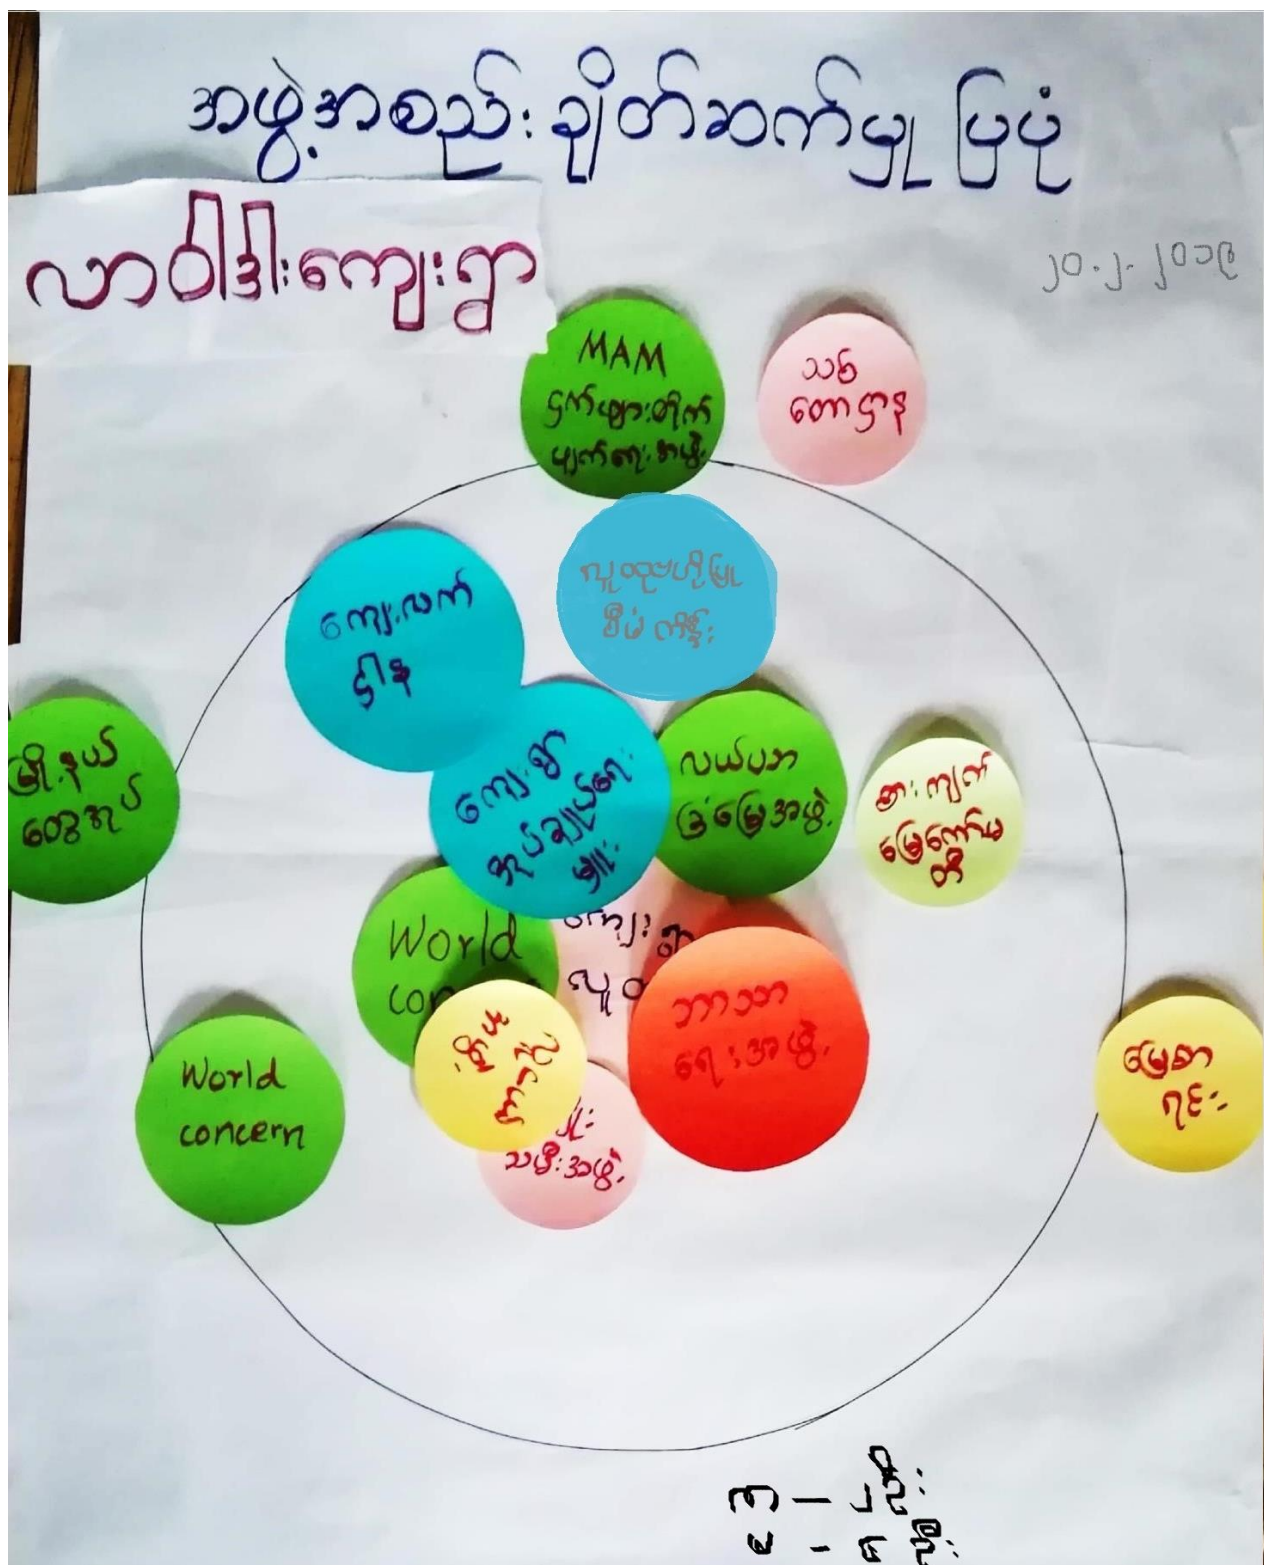 အဖွဲ့အစည်းချိတ်ဆက်မှု ပြပုံ
လာဝါဒါးကျေးရွာ
၂၀.၂.၂၀၁၉
MAM
ငှက်ဖျားတိုက်
ဖျက်ရေးအဖွဲ့
သစ်
တောဌာန
ကျေးလက်
ဌါန
လူထုဗဟိုပြု
စီမံကိန်း
မြို့နယ်
ထွေအုပ်
ကျေးရွာ
အုပ်ချုပ်ရေး
မှူး
လယ်ယာ
မြေအဖွဲ့
စားကျက်
မြေကော်မ
တီ
World
ကျေးရွာ
လူ
ဘာသာ
ရေးအဖွဲ့
World
concern
မြေစာ
ရင်း
သမီးအဖွဲ့